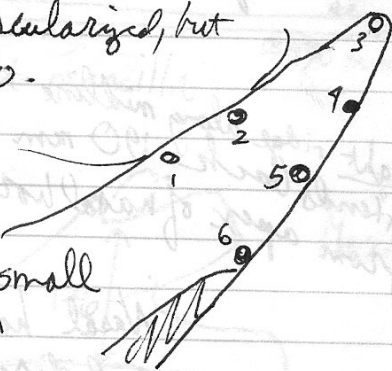 scularized, but
o.
3
4
2
1
5
6
small